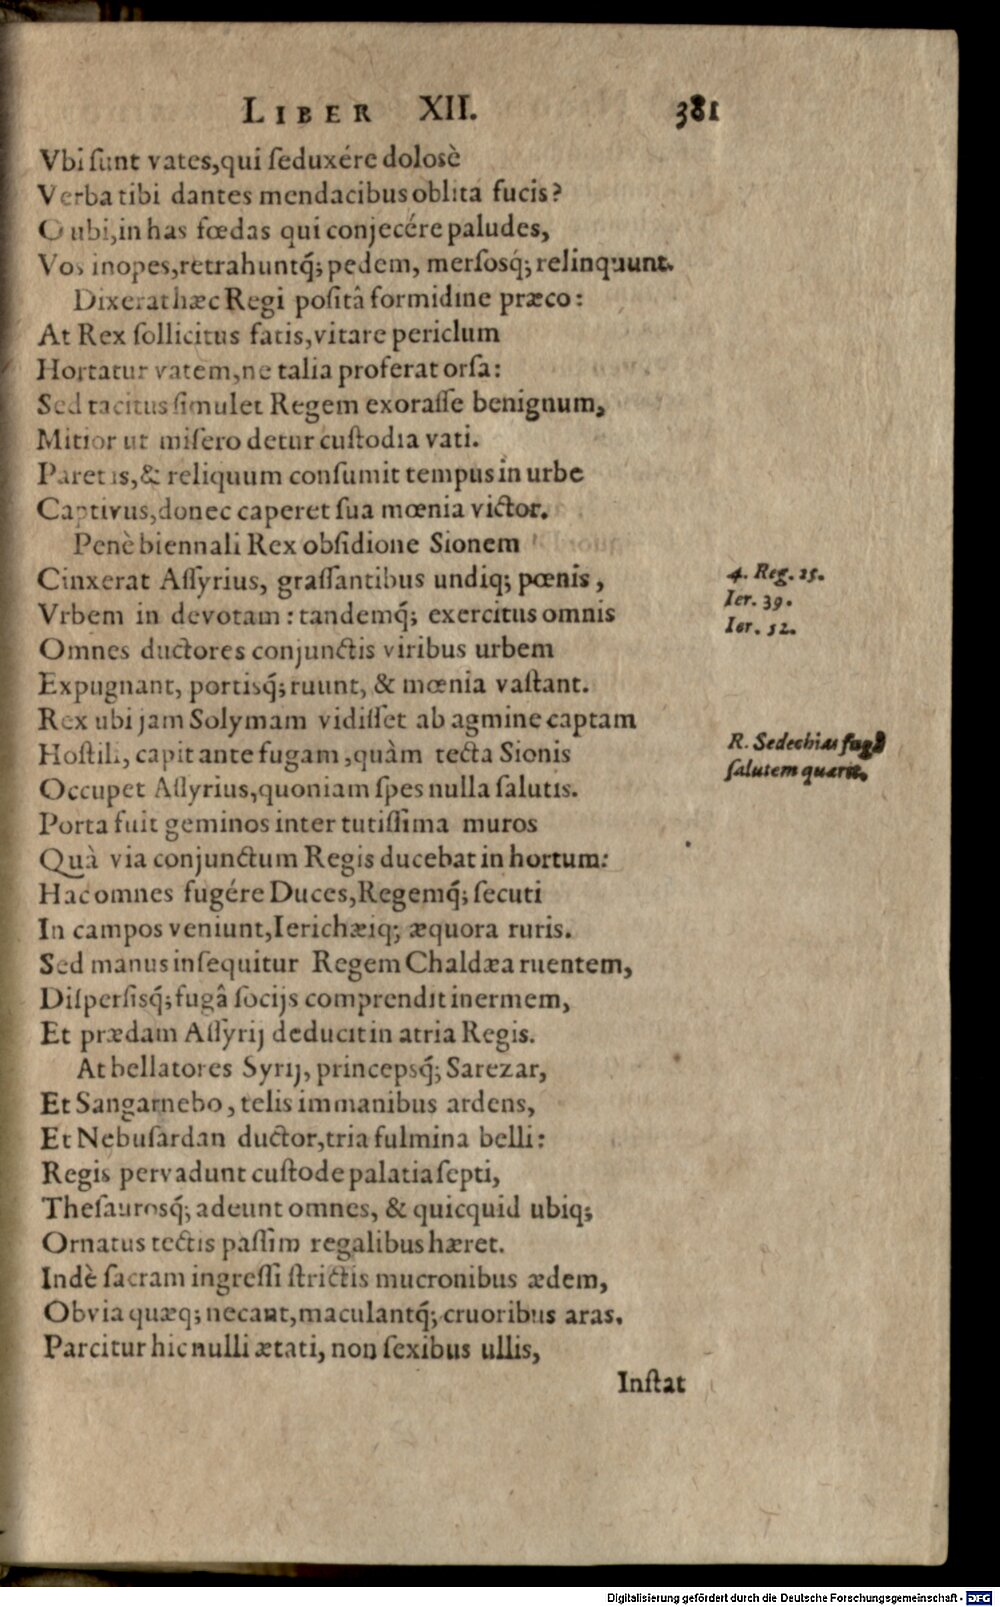 LIBER XII. 381
Vbi sunt vates, qui seduxére dolosè
Verba tibi dantes mendacibus oblita fucis?
O ubi, in has fœdas qui conjecére paludes,
Vos inopes, retrahuntq́; pedem, mersosq́; relinquunt.
Dixerat hæc Regi positâ formidine præco:
At Rex sollicitus fatis, vitare periclum
Hortatur vatem, ne talia proferat orsa:
Sed tacitus simulet Regem exorasse benignum,
Mitior ut misero detur custodia vati.
Paret is, & reliquum consumit tempus in urbe
Captivus, donec caperet sua mœnia victor.
Penè biennali Rex obsidione Sionem
Cinxerat Assyrius, grassantibus undiq; pœnis,
4. Reg. 25.
Vrbem in devotam: tandemq́; exercitus omnis
Ier. 39.
Ier. 52.
Omnes ductores conjunctis viribus urbem
Expugnant, portisq́; ruunt, & mœnia vastant.
Rex ubi jam Solymam vidisset ab agmine captam
Hostili, capit ante fugam, quàm tecta Sionis
R. Sedechias fugâ
salutem quærit.
Occupet Assyrius, quoniam spes nulla salutis.
Porta fuit geminos inter tutissima muros
Quà via conjunctum Regis ducebat in hortum:
Hac omnes fugére Duces, Regemq́; secuti
In campos veniunt, Ierichæiq; æquora ruris.
Sed manus insequitur Regem Chaldæa ruentem,
Dispersisq́; fugâ socijs comprendit inermem,
Et prædam Assyrij deducit in atria Regis.
At bellatores Syrij, princepsq́; Sarezar,
Et Sangarnebo, telis immanibus ardens,
Et Nebusardan ductor, tria fulmina belli:
Regis pervadunt custode palatia septi,
Thesaurosq́; adeunt omnes, & quicquid ubiq;
Ornatus tectis passim regalibus hæret.
Indè sacram ingressi strictis mucronibus ædem,
Obvia quæq; necant, maculantq́; cruoribus aras.
Parcitur hic nulli ætati, non sexibus ullis,
Instat
Digitalisierung gefördert durch die Deutsche Forschungsgemeinschaft - DFG